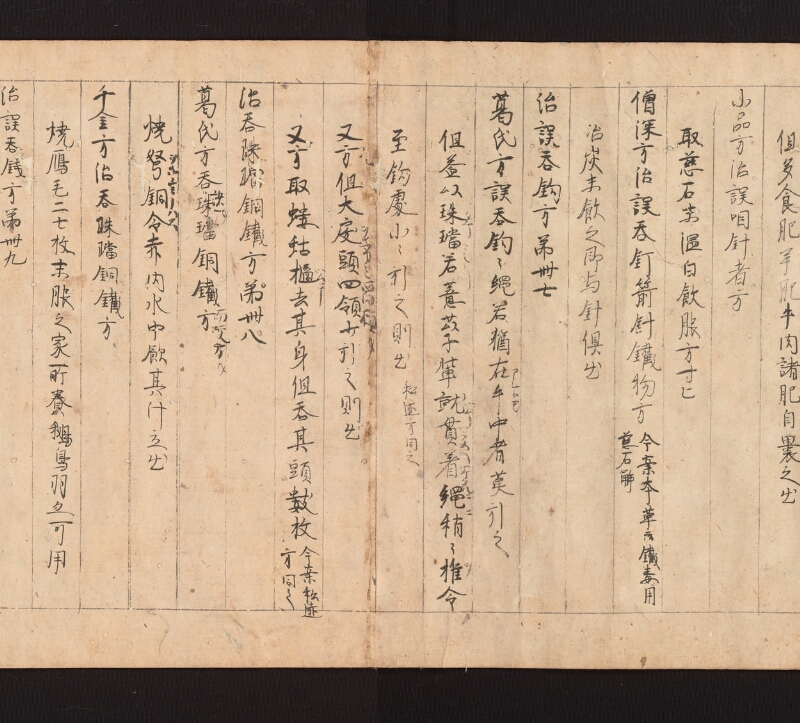 但多食肥羊肥牛肉諸肥自裹之出
小品方治誤咽針者方
取慈石末温白飲服方寸匕
僧深方治誤吞釘箭針鐵物方 今案本草云鐵毒用慈石解
治炭末飲之即与針俱出
治誤吞鉤方第卅七
葛氏方誤吞釣〻繩若猶在手中者莫引之
但益以珠璫若薏苡子輩就貫着繩稍〻推令
至鉤處小〻引之則出 松遠方同之
又方但大戾頭四領少引之則出
又方取蝼蛄摳去其身但吞其頭數枚 今案松遠方同之
治吞珠璫銅鐵方第卅八
葛氏方吞珠璫銅鐵方
燒弩銅令赤内水中飲其汁立出
千金方治吞珠璫銅鐵方
燒鴈毛二七枚末服之家所養鵝鳥羽亦可用
治誤吞錢方第卅九